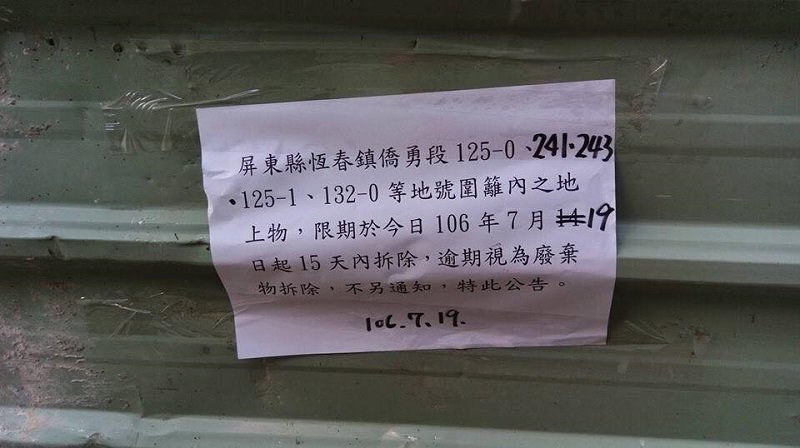 屏東縣恆春鎮僑勇段125-0、241.243
.125-1、132-0等地號圍籬內之地
上物，限期於今日106年7月14 19
日起15天內拆除，逾期視為廢棄
物拆除，不另通知，特此公告。
106.7.19.